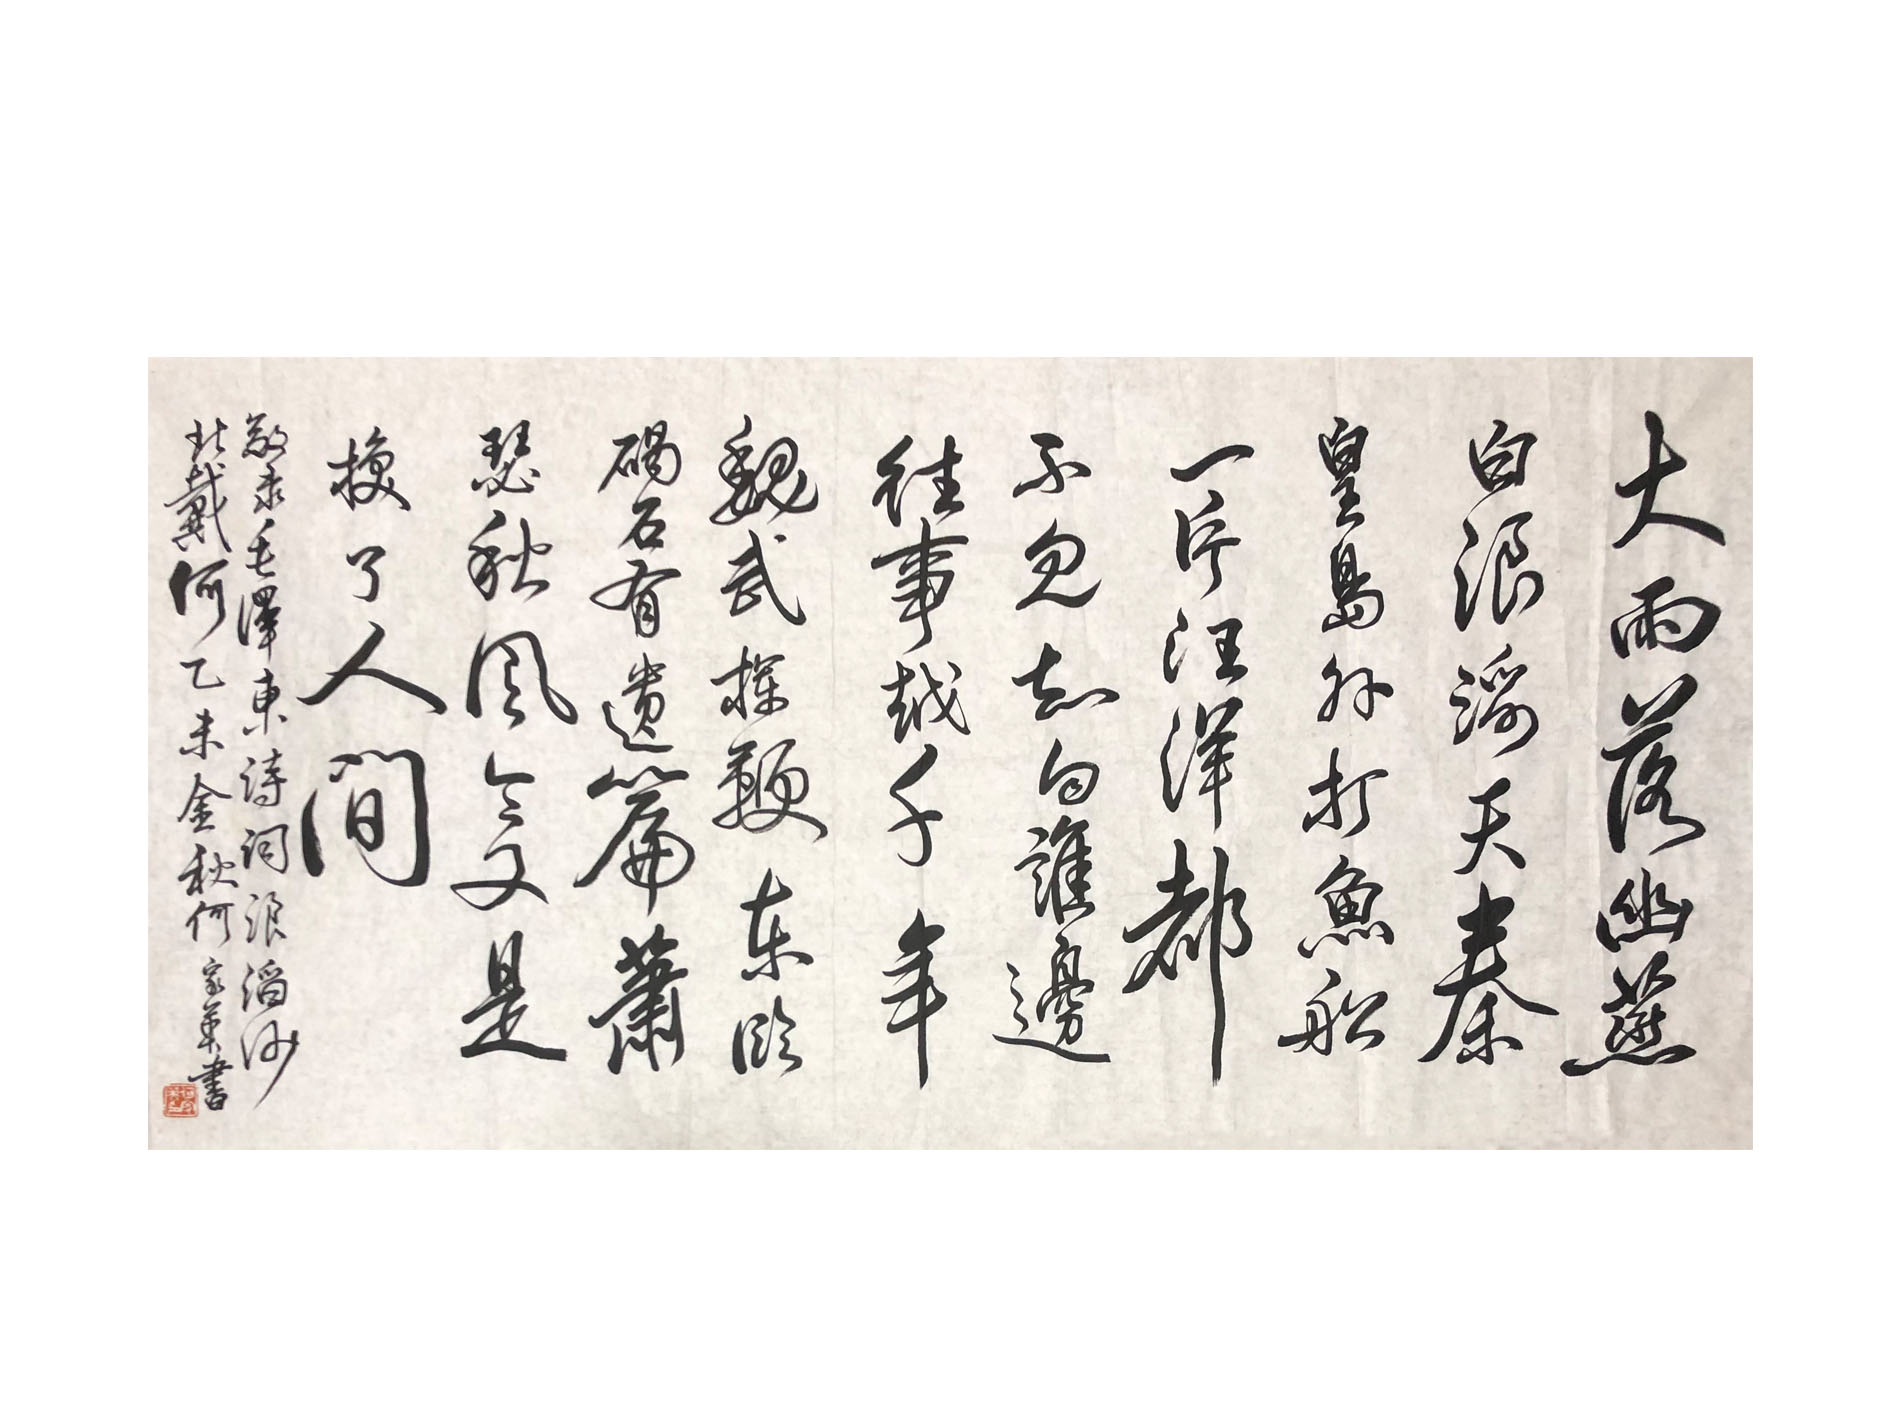 大雨落幽燕
白浪滔天秦
皇島外打魚船
一片汪洋都
不見知向誰邊
往事越千年
魏武揮鞭东临
碣石有遗篇蕭
瑟秋风今又是
换了人間
敬录毛澤東詩词浪滔沙
北戴何乙未金秋何家書